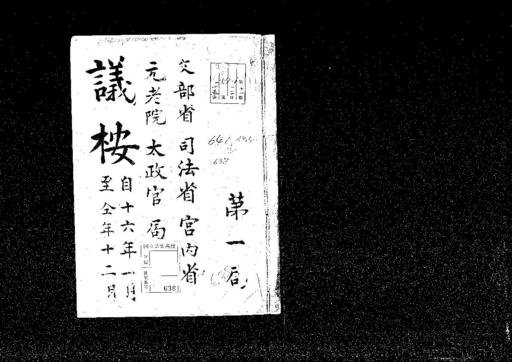 第一局
文部省 司法省 宮内省
元老院 太政官 局
議桉
自十六年一月
至仝年十二月
641
638
638